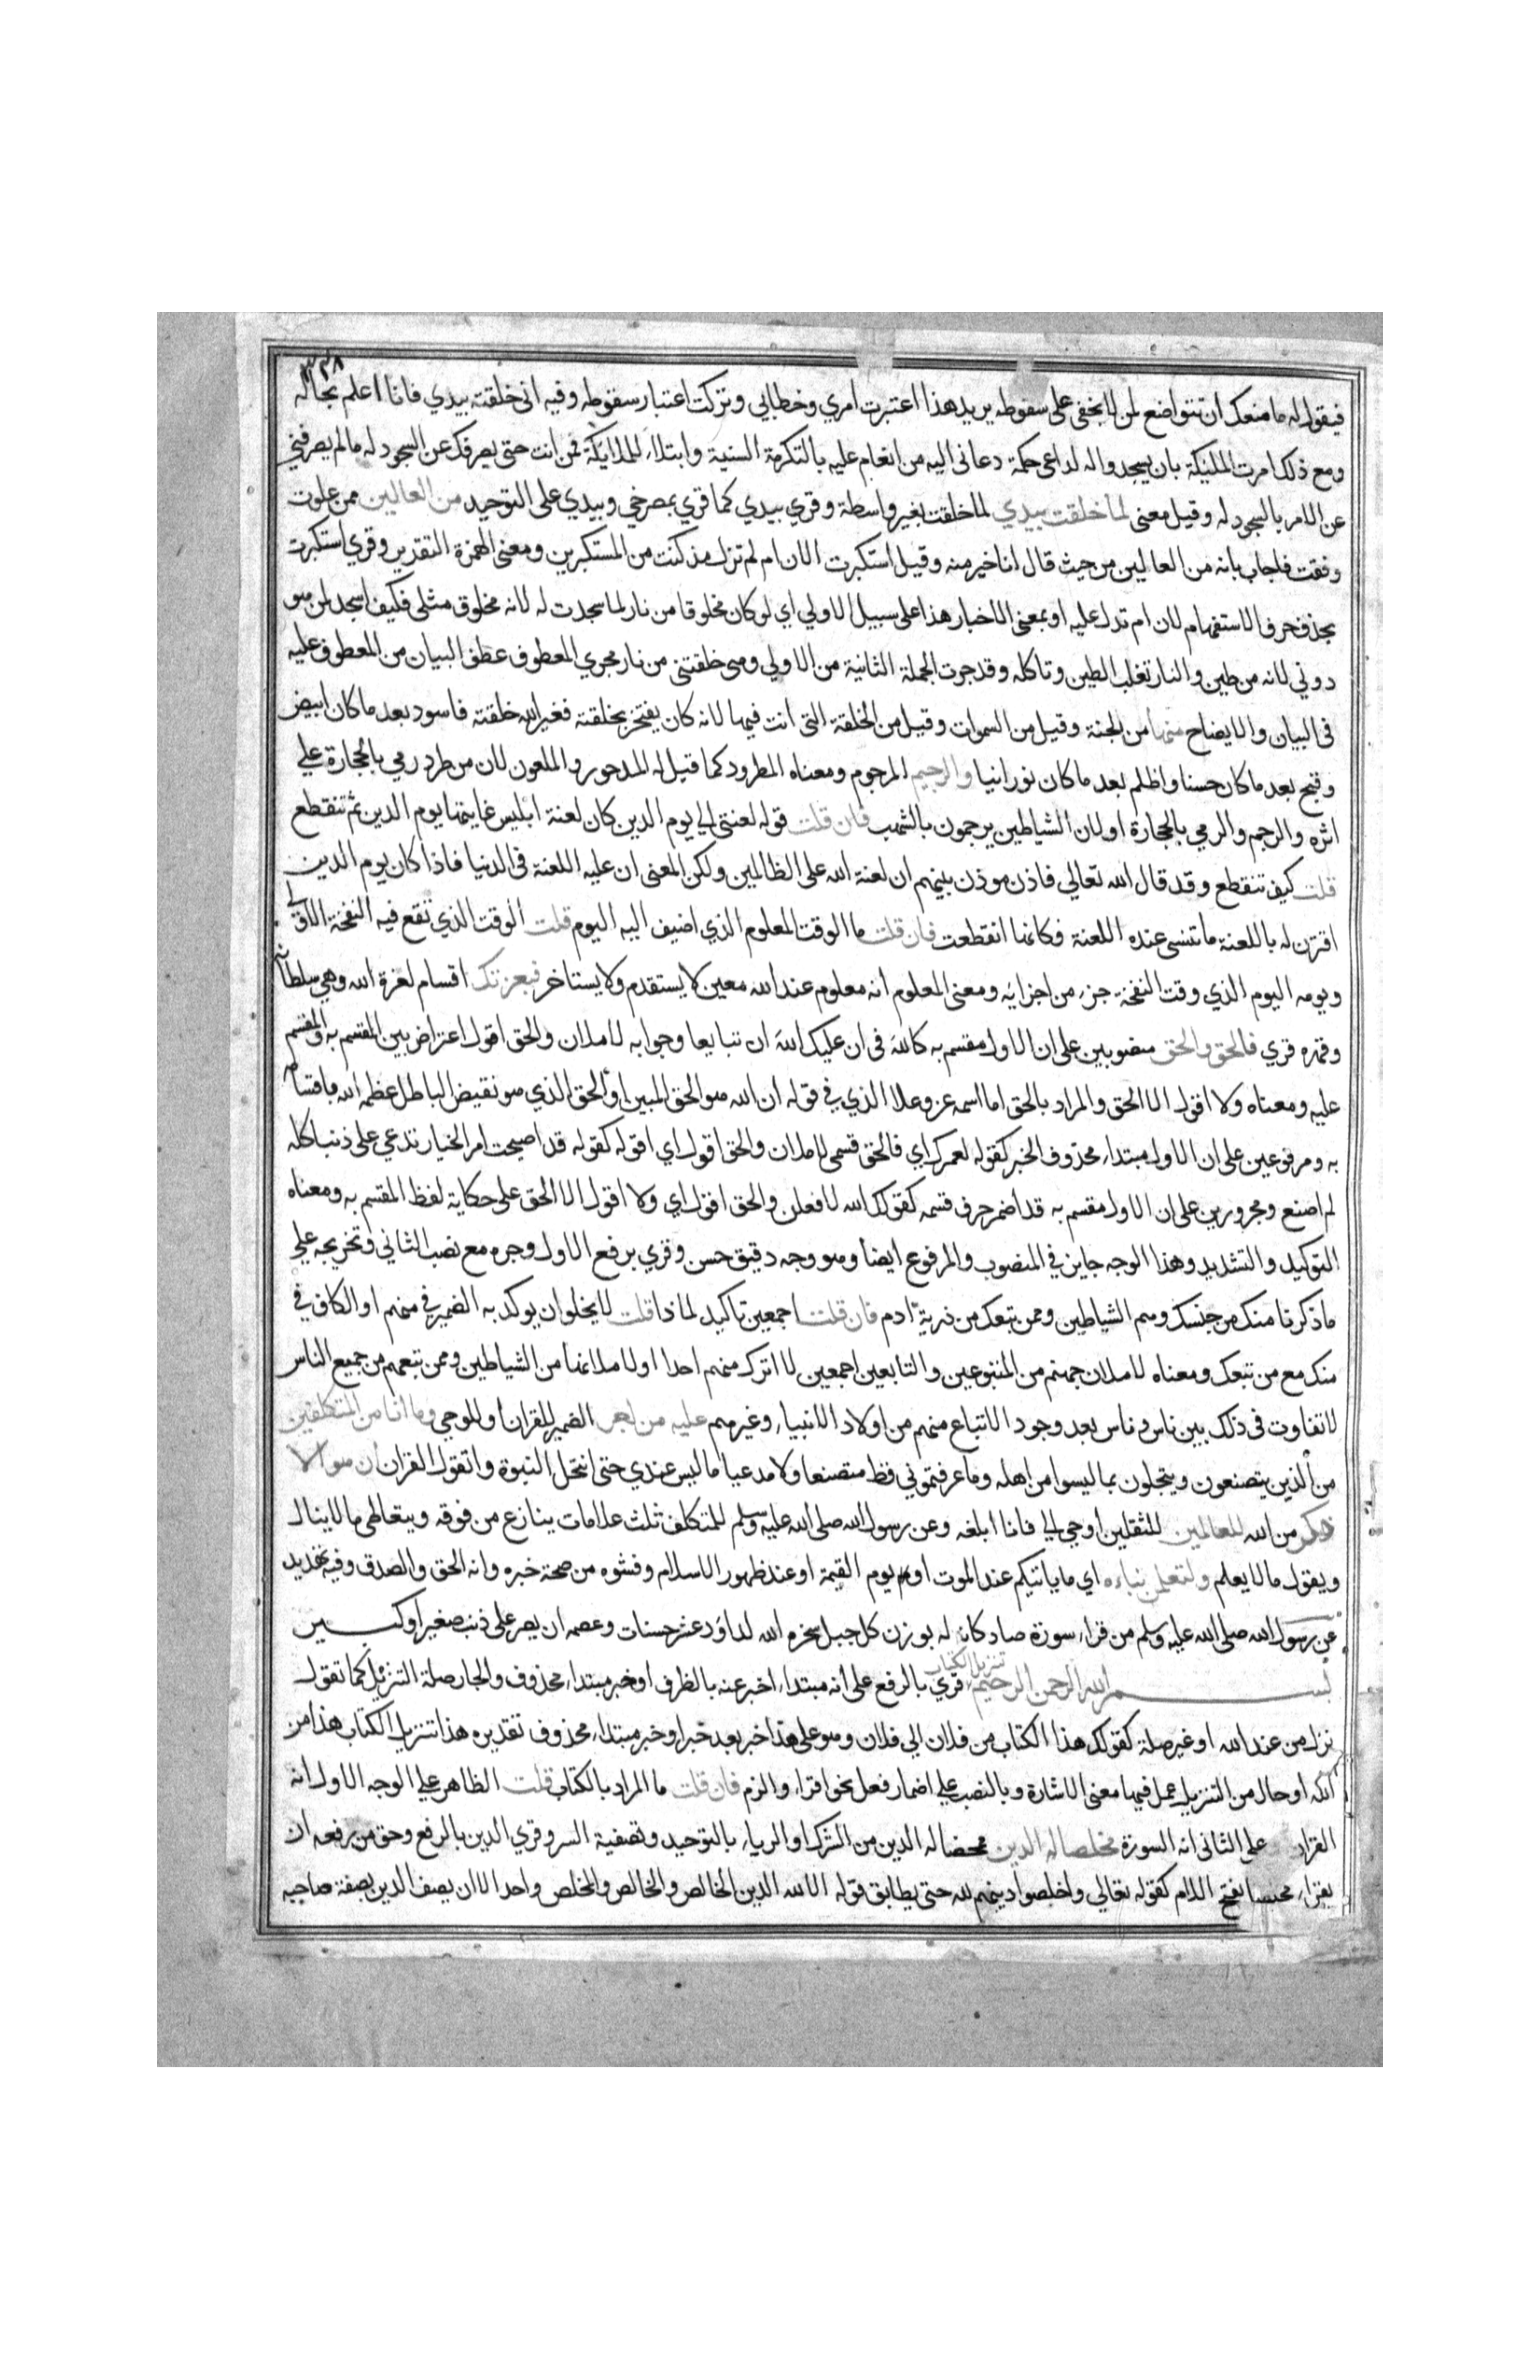 ٣٣٨
فيقول له ما منعك ان تتواضع لمن لا يخفى على سقوطه يريد هذا اعتبرت امري وخطابي وتركت اعتبار سقوطه وفيه اني خلقته بيدي فانا اعلم بحاله
ومع ذلك امرت الملئكة بان يسجدوا له لداعي حكمة دعاني اليه من انعام عليه بالتكرمة السنية وابتلاء للملايكة فمن انت حتى يصرفك عن السجود له ما لم يصرفني
عن الامر بالسجود له وقيل معنى لما خلقت بيدي لما خلقت بغير واسطة وقري بيدي كما قري بمصرخي وبيدي على التوحيد من العالين ممن علوت
وفقت فاجاب بانه من العالين من حيث قال انا خير منه وقيل استكبرت الان ام لم تزل مذ كنت من المستكبرين ومعنى الهمزة التقدير وقري استكبرت
بحذف حرف الاستفهام لان ام تدل عليه او بمعنى الاخبار هذا على سبيل الاولي اي لو كان مخلوقا من نار لما سجدت له لانه مخلوق مثلي فكيف اسجد لمن هو
دوني لانه من طين والنار تغلب الطين وتاكله وقد جرت الجملة الثانية من الاولي وهي خلقتني من نار مجري المعطوف عطف البيان من المعطوف عليه
في البيان والايضاح منها من الجنة وقيل من السموات وقيل من الخلقة التي انت فيها لانه كان يفتخر بخلقته فغير الله خلقته فاسود بعد ما كان ابيض
وقبح بعد ما كان حسنا واظلم بعد ما كان نورانيا والرجيم المرجوم ومعناه المطرود كما قيل له المدحور والملعون لان من طرد رمي بالحجارة علي
اثره والرجم والرمي بالحجارة او لان الشياطين يرجمون بالشهب فان قلت قوله لعنتي الي يوم الدين كان لعنة ابليس غايتها يوم الدين ثم تنقطع
قلت كيف تنقطع وقد قال الله تعالي فاذن موذن بينهم ان لعنة الله على الظالمين ولكن المعنى ان عليه اللعنة في الدنيا فاذا كان يوم الدين
اقترن له باللعنة ما تنسى عنده اللعنة فكانما انقطعت فان قلت ما الوقت المعلوم الذي اضيف اليه اليوم قلت الوقت الذي تقع فيه النفخة الاولي
ويومه اليوم الذي وقت النفخة جزء من اجزايه ومعنى المعلوم انه معلوم عند الله معين لا يستقدم ولا يستاخر فبعزتك اقسام لعزة الله وهي سلطانه
وقهره قري فالحق والحق منصوبين على ان الاول مقسم به كالله في ان عليك الله ان تبايعا وجوابه لاملان والحق اقول اعتراض بين المقسم به والمقسم
عليه ومعناه ولا اقول الا الحق والمراد بالحق اما اسمه عز وعلا الذي في قوله ان الله هو الحق المبين او الحق الذي هو نقيض الباطل عظمه الله باقسامه
به ومرفوعين على ان الاول مبتداء محذوف الخبر كقوله لعمرك اي فالحق قسمي لاملان والحق اقول اي اقوله كقوله قد اصبحت ام الخيار تدعي على ذنبا كله
لم اصنع ومجرورين على ان الاول مقسم به قد اضمر حرف قسمه كقولك الله لافعلن والحق اقول اي ولا اقول الا الحق على حكاية لفظ المقسم به ومعناه
التوكيد والتشديد وهذا الوجه جايز في المنصوب والمرفوع ايضا وهو وجه دقيق حسن وقري برفع الاول وجره مع نصب الثاني وتخريجه علي
ما ذكرنا منك من جنسك وهم الشياطين وممن تبعك من ذرية ادم فان قلت اجمعين تاكيد لماذا قلت لا يخلو ان يوكد به الضمير في منهم او الكاف في
منك مع من تبعك ومعناه لاملان جهنم من المتبوعين والتابعين اجمعين لا اترك منهم احدا او لاملانها من الشياطين وممن تبعهم من جميع الناس
لا تفاوت في ذلك بين ناس وناس بعد وجود الاتباع منهم من اولاد الانبياء وغيرهم عليه من اجر الضمير للقران او للوحي وما انا من المتكلفين
من الذين يتصنعون ويتحلون بما ليسوا من اهله وما عرفتموني قط متصنعا ولا مدعيا ما ليس عندي حتى انتحل النبوة واتقول القران ان هو الا
ذكر من الله للعالمين للثقلين اوحي الي فانا ابلغه وعن رسول الله صلى الله عليه وسلم للمتكلف ثلث علامات ينازع من فوقه ويتعاطى ما لا ينال
ويقول ما لا يعلم ولتعلمن نباءه اي ما ياتيكم عند الموت او يوم القيمة او عند ظهور الاسلام وفشوه من صحة خبره وانه الحق والصدق وفيه تهديد
عن رسول الله صلى الله عليه وسلم من قراء سورة صاد كان له بوزن كل جبل سخره الله لداود عشر حسنات وعصمه ان يصر على ذنب صغير او كبير
بسم الله الرحمن الرحيم تنزيل الكتاب قري بالرفع على انه مبتداء اخبر عنه بالظرف او خبر مبتداء محذوف والجار صلة التنزيل كما تقول
نزل من عند الله او غير صلة كقولك هذا الكتاب من فلان الي فلان وهو على هذا خبر بعد خبر او خبر مبتداء محذوف تقديره هذا تنزيل الكتاب هذا من
الله او حال من التنزيل عمل فيها معنى الاشارة وبالنصب علي اضمار فعل نحو اقراء والزم فان قلت ما المراد بالكتاب قلت الظاهر علي الوجه الاول انه
القران على الثاني انه السورة مخلصا له الدين محضا له الدين من الشرك او الرياء بالتوحيد وتصفية السر وقري الدين بالرفع وحق من رفعه ان
يقراء مخلصا بفتح اللام كقوله تعالي واخلصوا دينهم لله حتى يطابق قوله الا لله الدين الخالص والخالص والمخلص واحد الا ان يصف الدين بصفة صاحبه